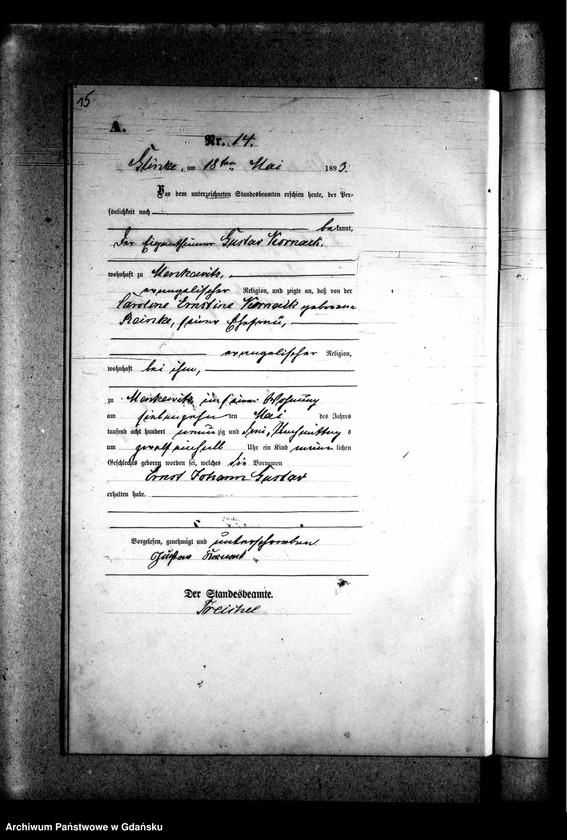 15
A.
Nr. 14.
Glinke, am 18ten Mai 1893.
Vor dem unterzeichneten Standesbeamten erschien heute, der Per-
sönlichkeit nach
bekannt,
der Eigenthümer Gustav
wohnhaft zu
evangelischer Religion, und zeigte an, daß von der
Caroline Ernstine geborene
Reinke, seiner Ehefrau,
evangelischer Religion,
wohnhaft bei ihm,
zu in seiner Wohnung
am siebenzehnten Mai des Jahres
tausend acht hundert neunzig und drei, Nachmittags
um Uhr ein Kind männlichen
Geschlechts geboren worden sei, welches die Vornamen
Ernst Johann Gustav
erhalten habe.
Vorgelesen, genehmigt und unterschrieben
Gustav
Der Standesbeamte.
Treichel
Archiwum Państwowe w Gdańsku